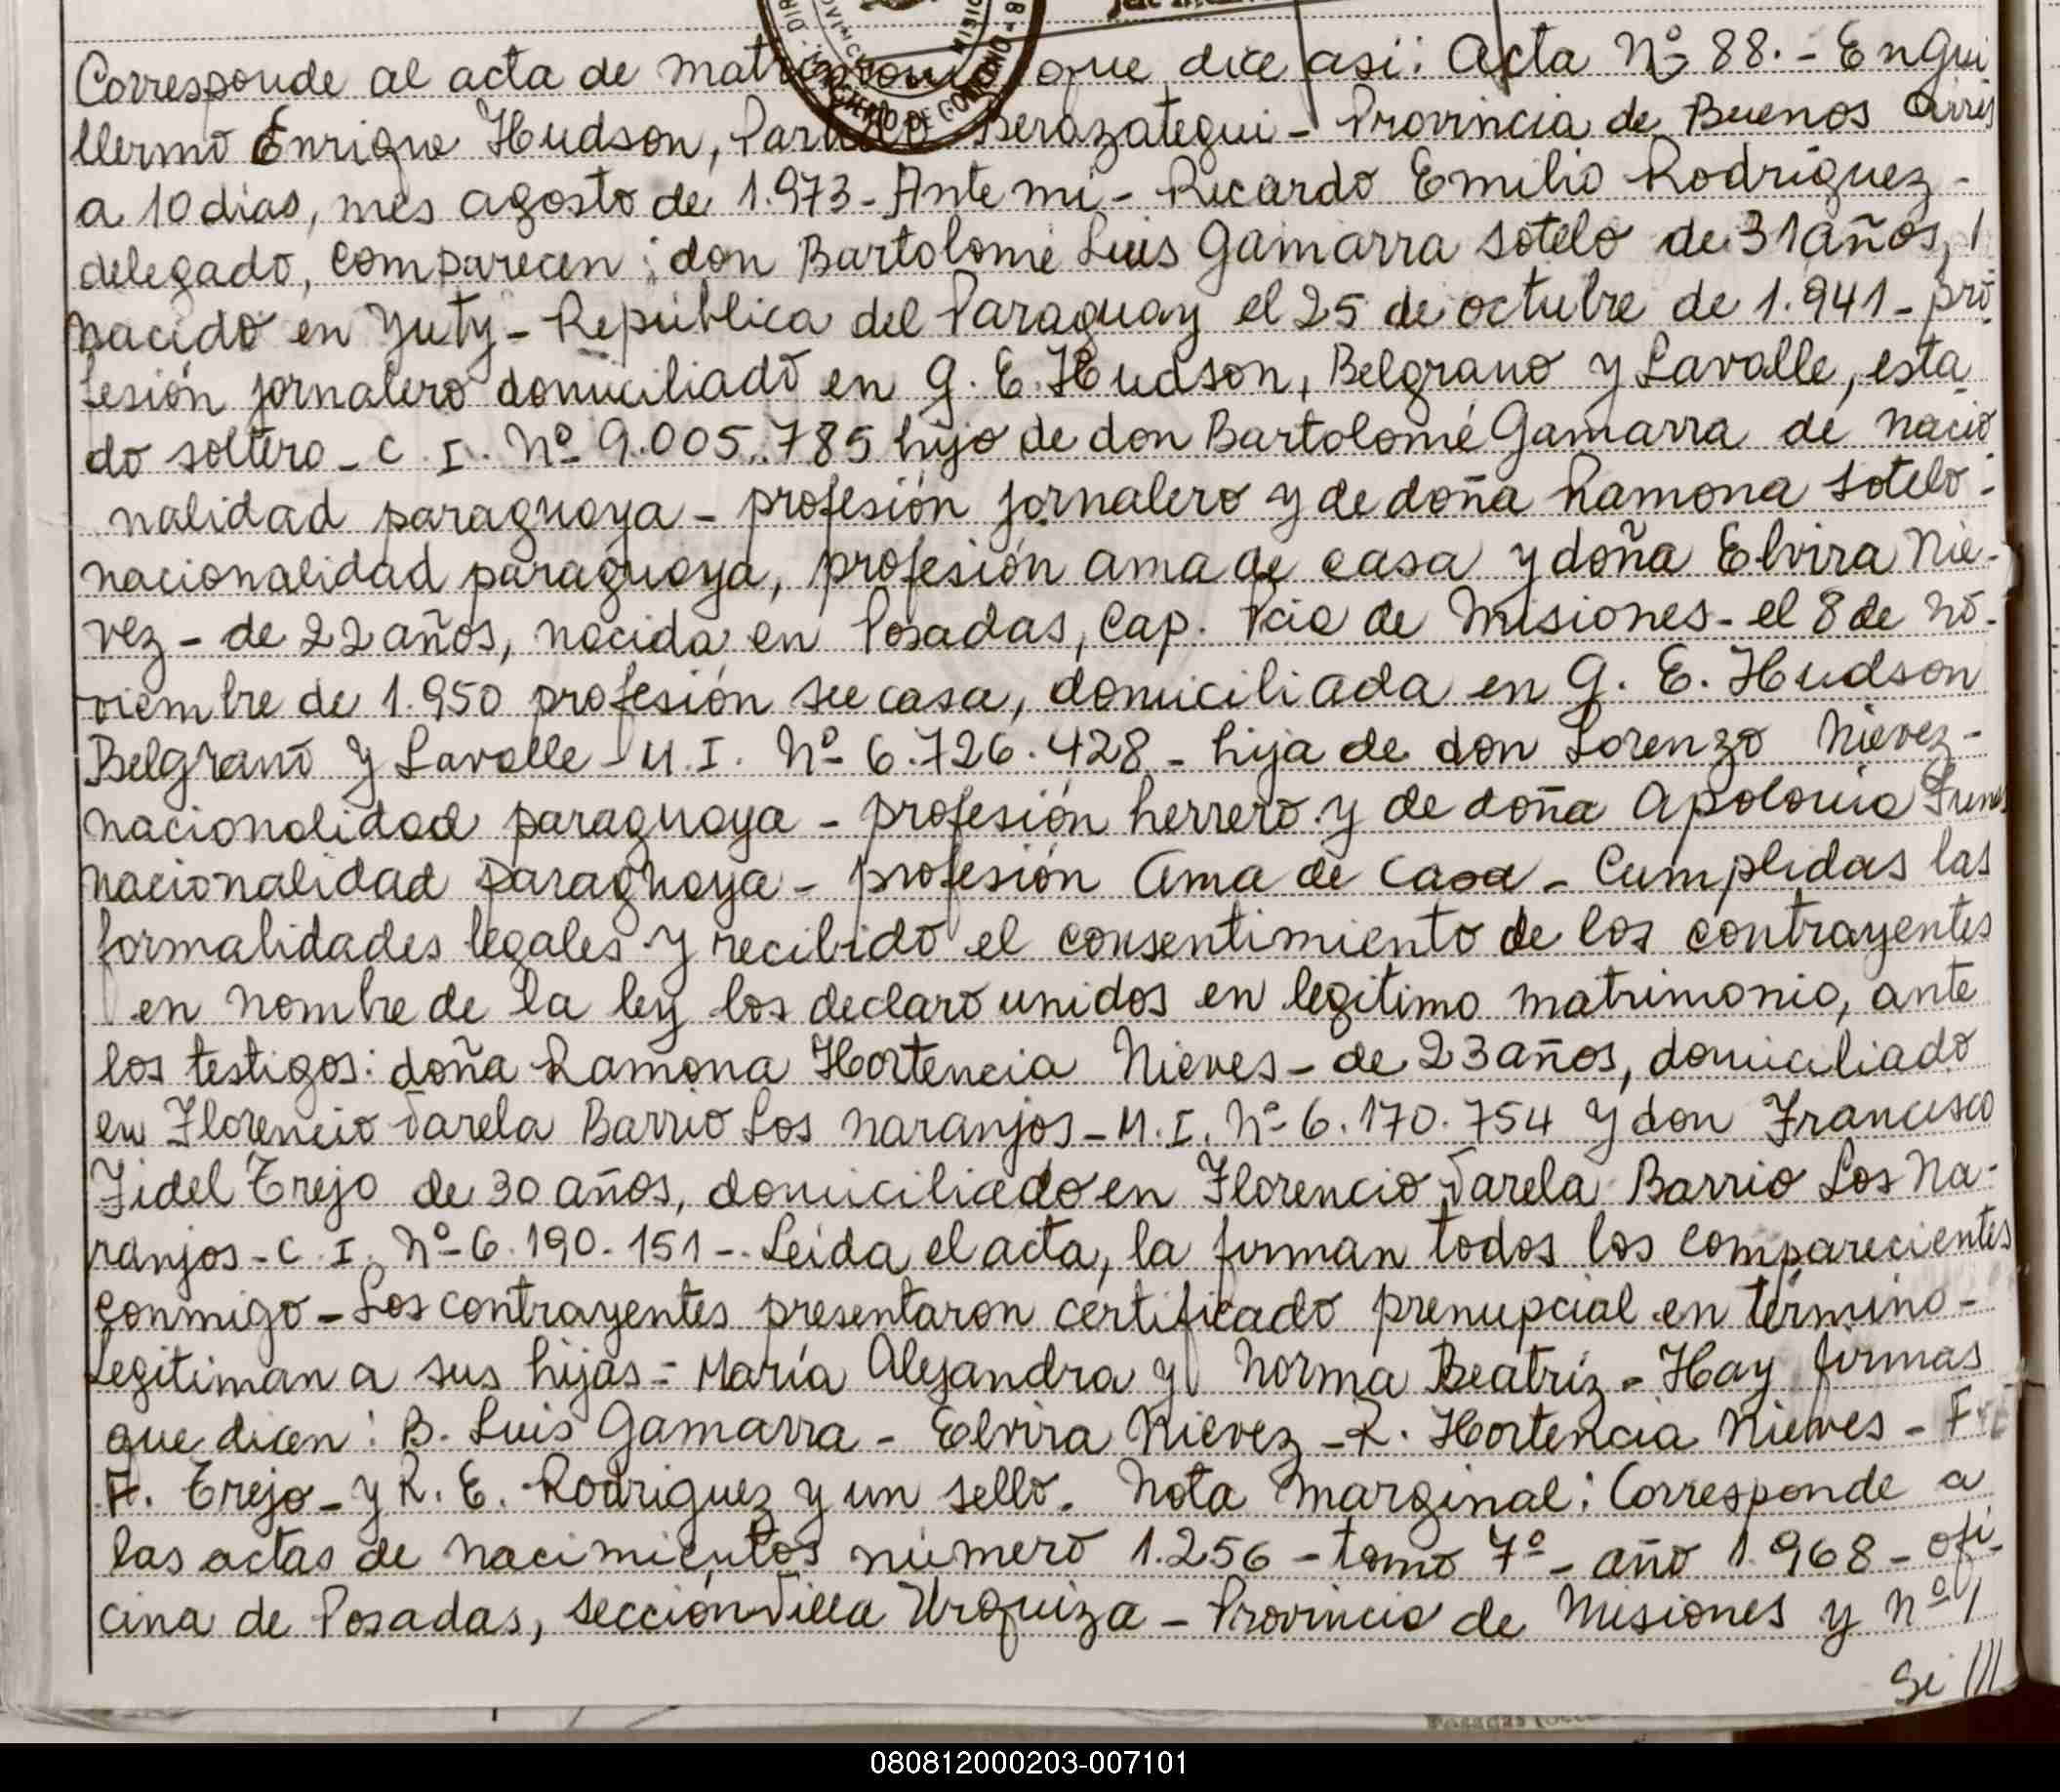 Corresponde al acta de matrimonio que dice así: Acta Nº 88.- En Gui
llermo Enrique Hudson, Partido Berazategui - Provincia de Buenos Aires
a 10 días, mes agosto de 1.973 - Ante mi - Ricardo Emilio Rodríguez -
delegado, comparecen: don Bartolomé Luis Gamarra Sotelo de 31 años,
nacido en Yuty - República del Paraguay el 25 de octubre de 1.941 - pro
fesión jornalero domiciliado en G. E. Hudson, Belgrano y Lavalle, esta
do soltero - C. I. Nº 9.005.785 hijo de don Bartolomé Gamarra de nacio
nalidad paraguaya - profesión jornalero y de doña Ramona Sotelo -
nacionalidad paraguaya, profesión ama de casa y doña Elvira Nie-
vez - de 22 años, nacida en Posadas, Cap. Pcia de Misiones - el 8 de no-
viembre de 1.950 profesión su casa, domiciliada en G. E. Hudson
Belgrano y Lavalle - M. I. Nº 6.726.428 - hija de don Lorenzo Nievez -
nacionalidad paraguaya - profesión herrero y de doña Apolonia
nacionalidad paraguaya - profesión Ama de casa - Cumplidas las
formalidades legales y recibido el consentimiento de los contrayentes
en nombre de la ley los declaro unidos en legítimo matrimonio, ante
los testigos: doña Ramona Hortencia Nieves - de 23 años, domiciliado
en Florencio Varela Barrio Los naranjos - M. I. Nº 6.170.754 y don Francisco
Fidel Trejo de 30 años, domiciliado en Florencio Varela Barrio Los Na-
ranjos - C. I. Nº 6.190.151 -. Leída el acta, la firman todos los comparecientes
conmigo - Los contrayentes presentaron certificado prenupcial en término -
Legitiman a sus hijas = María Alejandra y Norma Beatríz - Hay firmas
que dicen: B. Luis Gamarra - Elvira Nievez - R. Hortencia Nieves - F
F. Trejo - y R. E. Rodriguez y un sello. Nota Marginal: Corresponde a
las actas de nacimientos número 1.256 - tomo 7º - año 1.968 - ofi-
cina de Posadas, sección Villa Urquiza - Provincia de Misiones y nº /
Si ///
080812000203-007101